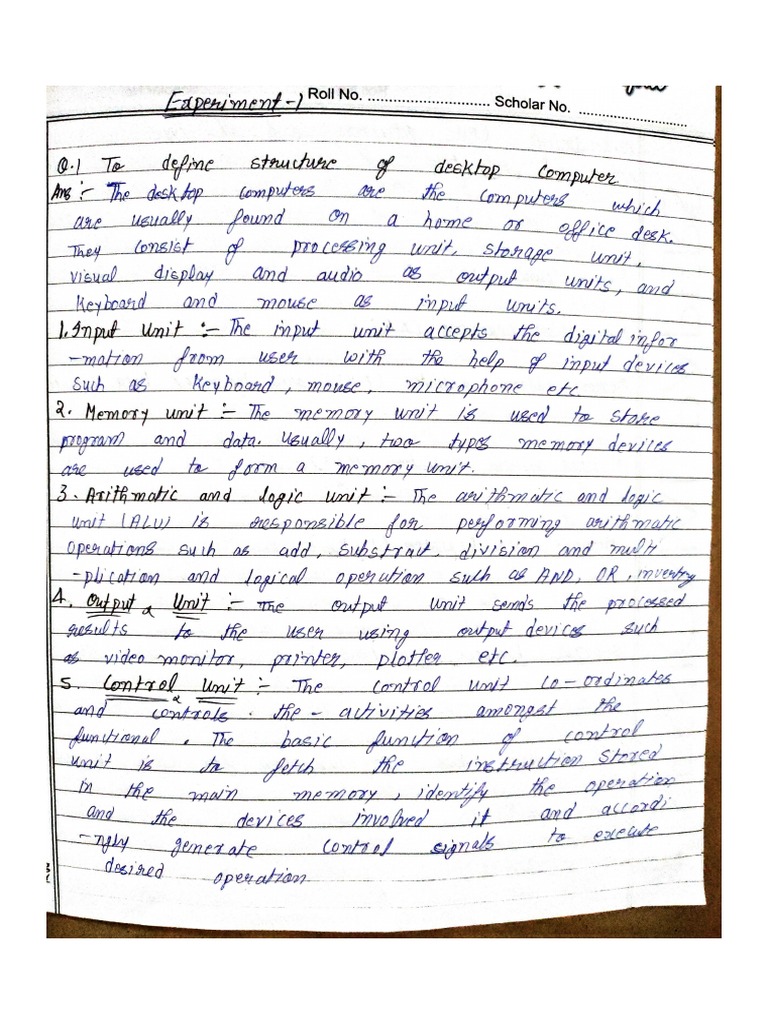 Experiment-1 Roll No. .................................. Scholar No. ..............................
Q.1 To define structure of desktop computer
Ans :- The desktop computers are the computers which
are usually found on a home or office desk.
They consist of processing unit, storage unit,
visual display and audio as output units, and
Keyboard and mouse as input units.
1. Input Unit :- The input unit accepts the digital infor
-mation from user with the help of input devices
such as Keyboard, mouse, microphone etc
2. Memory unit :- The memory unit is used to store
program and data. usually, two types memory devices
are used to form a memory unit.
3. Arithmatic and logic unit :- The arithmatic and logic
unit (ALU) is responsible for performing arithmatic
operations such as add, substract, division and multi
-plication and logical operation such as AND, OR,
4. Output Unit :- The output unit sends the processed
results to the user using output devices such
as video monitor, printer, plotter etc.
5. Control Unit :- The control unit co-ordinates
and controls the activities amongst the
functional. The basic function of control
unit is to fetch the instruction stored
in the main memory, identify the operation
and the devices involved it and accordi
-ngly generate control signals to execute
desired operation